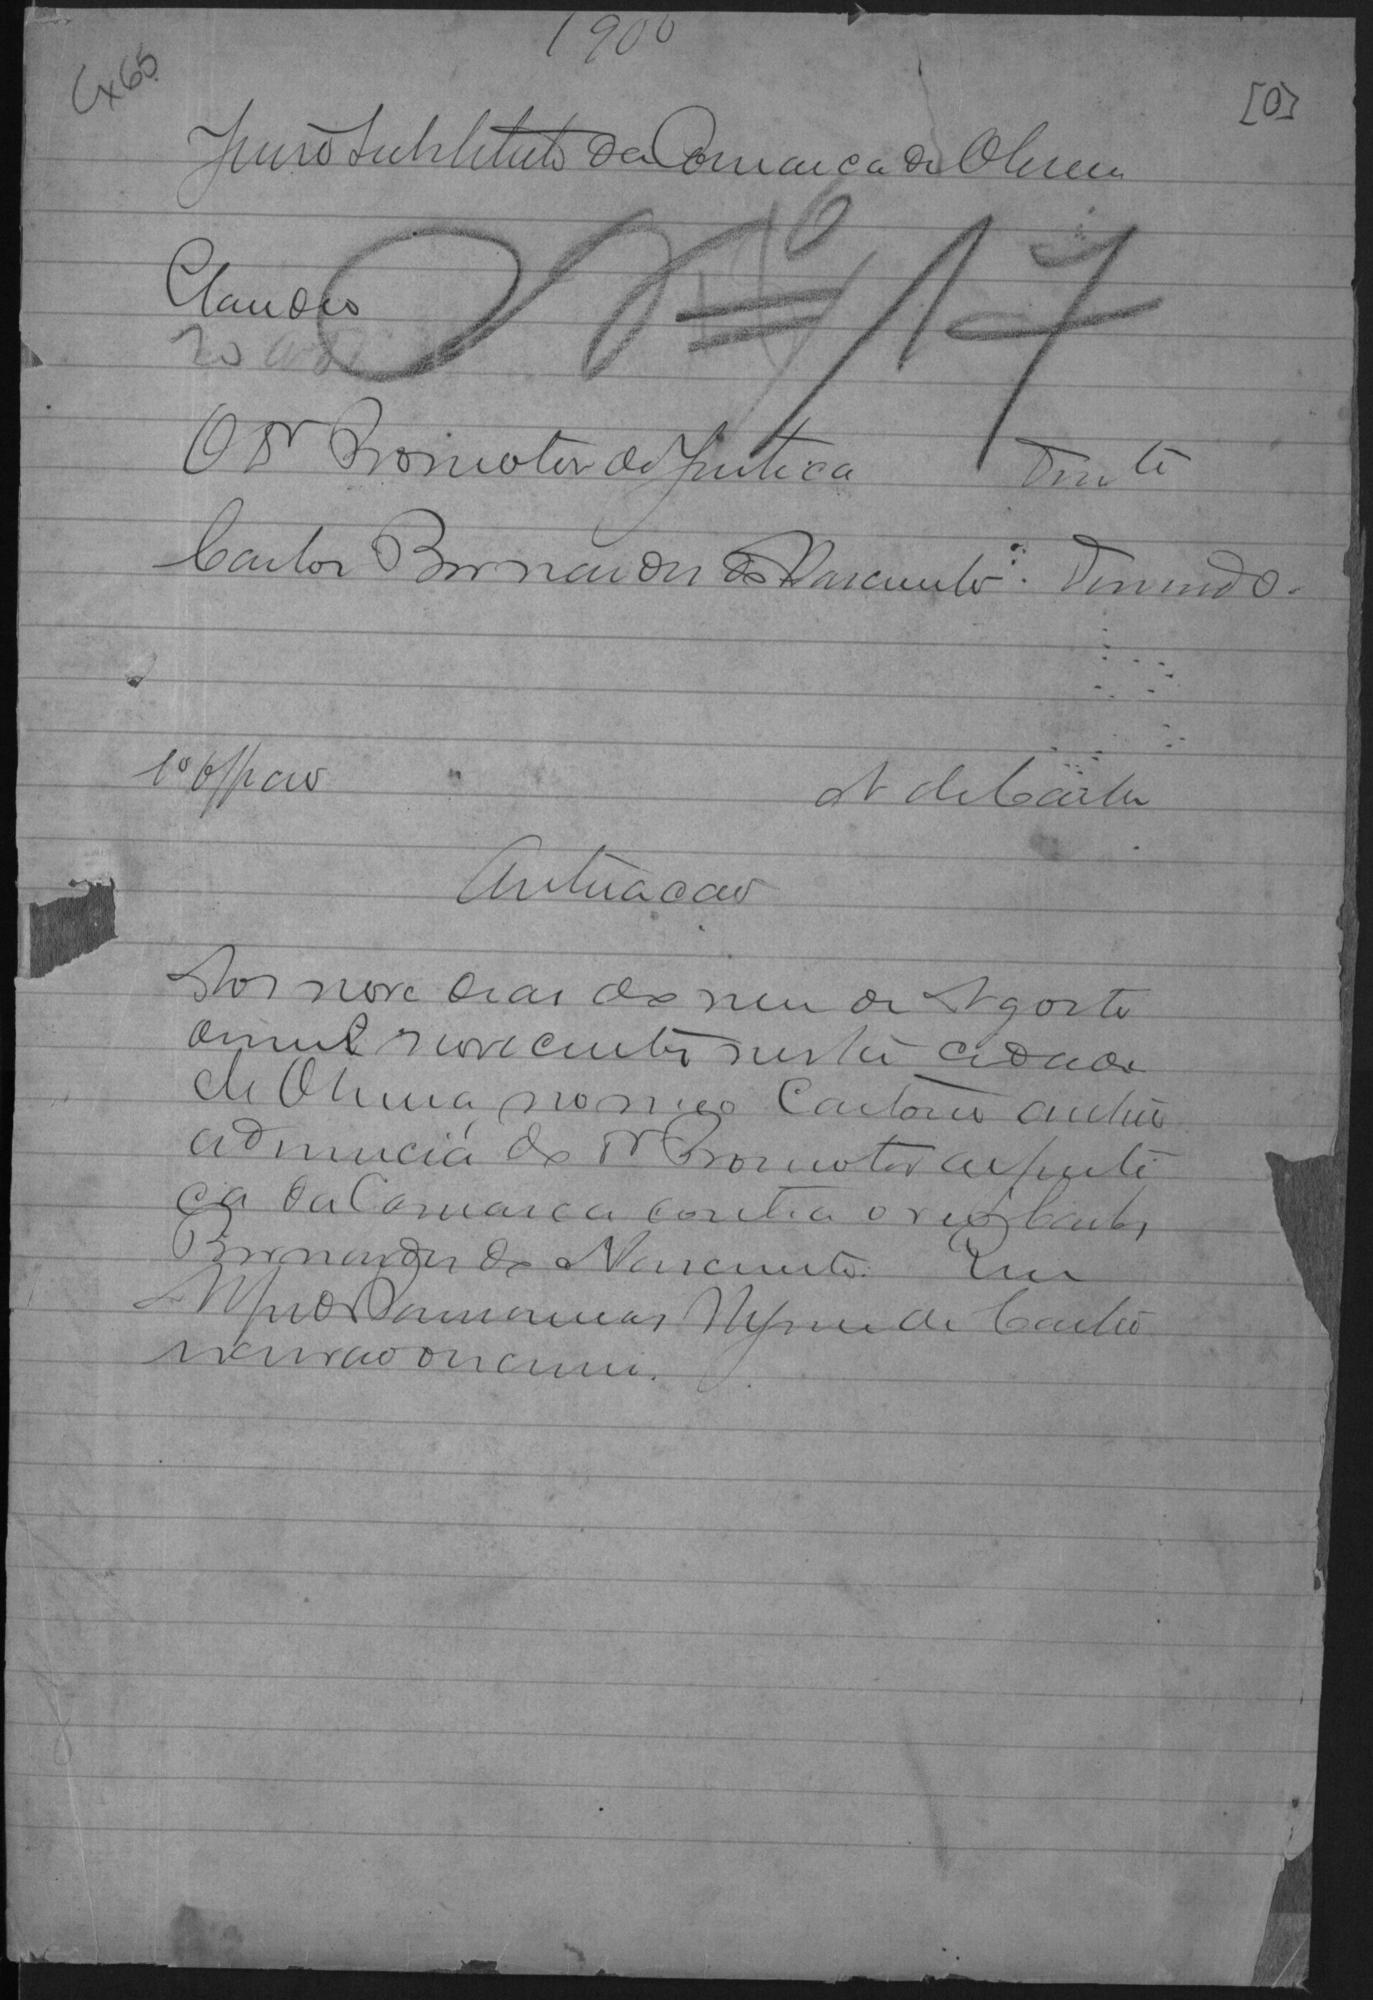 1900
Cx 65
[0]
Juiso Substituto da Comarca de Oliveira
Claudio
Nº 17
O Dr Promotor de Justiça Dente
Carlos Bernardes do Nascimento. Denunciado.
1º officio A. de Castro
Autuacao
Aos nove dias do mes de Agosto
de mil novecentos nesta cidade
de Oliveira no meo Cartorio autuo
a denuncia do Dr Promotor de Justi
ça da Comarca contra o reo Carlos
Bernardes do Nascimento. Eu
Alfredo Nepomuceno de Castro
escrivão escrevi.